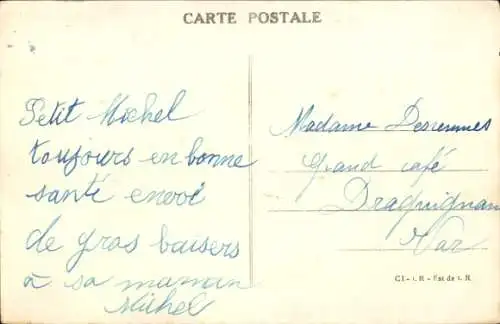 CARTE POSTALE
Petit Michel
toujours en bonne
santé envoi
de gros baisers
à sa maman
Michel
Madame
Grand café
Draguignan
Var